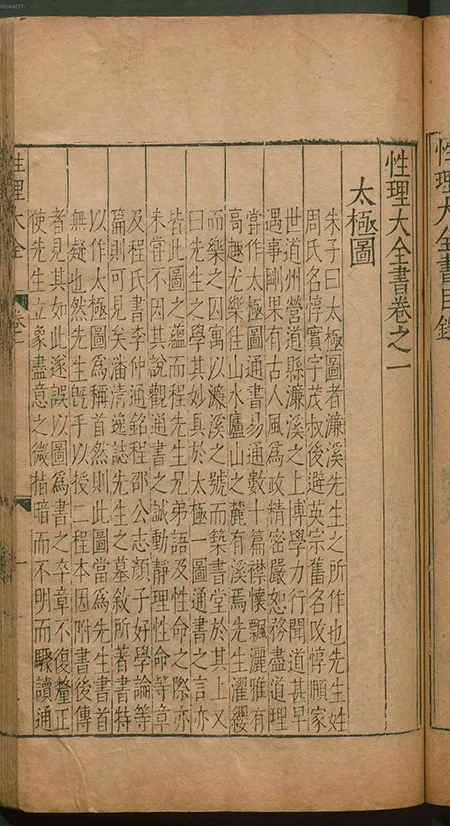 性理大全書目錄
性理大全書卷之一
太極圖
朱子曰太極圖者濂溪先生之所作也先生姓
周氏名惇實字茂叔後避英宗舊名改惇頤家
世道州營道縣濂溪之上博學力行聞道甚早
遇事剛果有古人風為政精密嚴恕務盡道理
嘗作太極圖通書易通數十篇襟懷飄灑雅有
高趣尤樂佳山水廬山之麓有溪焉先生濯纓
而樂之因寓以濂溪之號而築書堂於其上又
曰先生之學其妙具於太極一圖通書之言亦
皆此圖之蘊而程先生兄弟語及性命之際亦
未嘗不因其說觀通書之誠動靜理性命等章
及程氏書李仲通銘程邵公志顏子好學論等
篇則可見矣潘清逸誌先生之墓敘所著書特
以作太極圖為稱首然則此圖當為先生書首
無疑也然先生旣手以授二程本因附書後傳
者見其如此遂誤以圖為書之卒章不復釐正
使先生立象盡意之微㫖暗而不明而驟讀通
性理大全
卷一
一